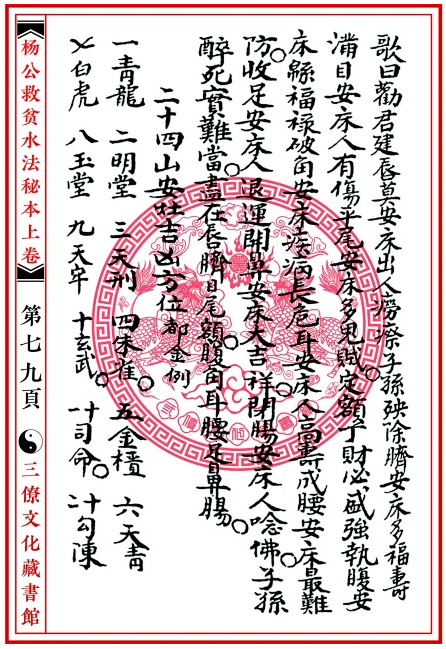 歌曰勸君建唇莫安床出人癆瘵子孫殃除臍安床多福壽
滿目安床人有傷平尾安床多鬼賊定額子財必盛強執腹安
床綿福祿破角安床疾病長危耳安床人高壽成腰安床最難
防收足安床人退運開鼻安床大吉祥閉腸安床人唸佛子孫
醉死實難當盡在唇臍目尾額腹角耳腰足鼻腸
二十四山安灶吉凶方位都金例
一青龍 二明堂 三天刑 四朱雀 五金櫃 六天青
七白虎 八玉堂 九天牢 十玄武 十一司命 十二勾陳
杨公救貧水法秘本上卷
第七九頁
三僚文化藏書館